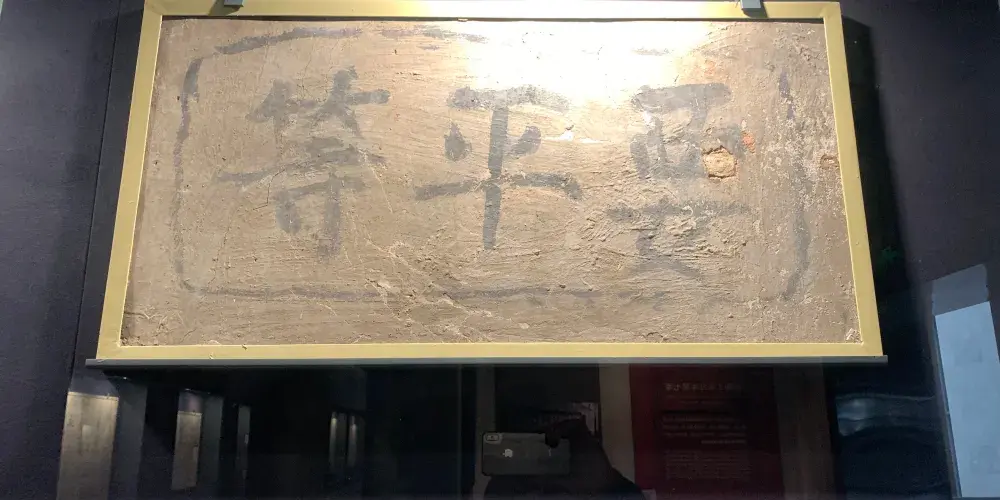 要平等